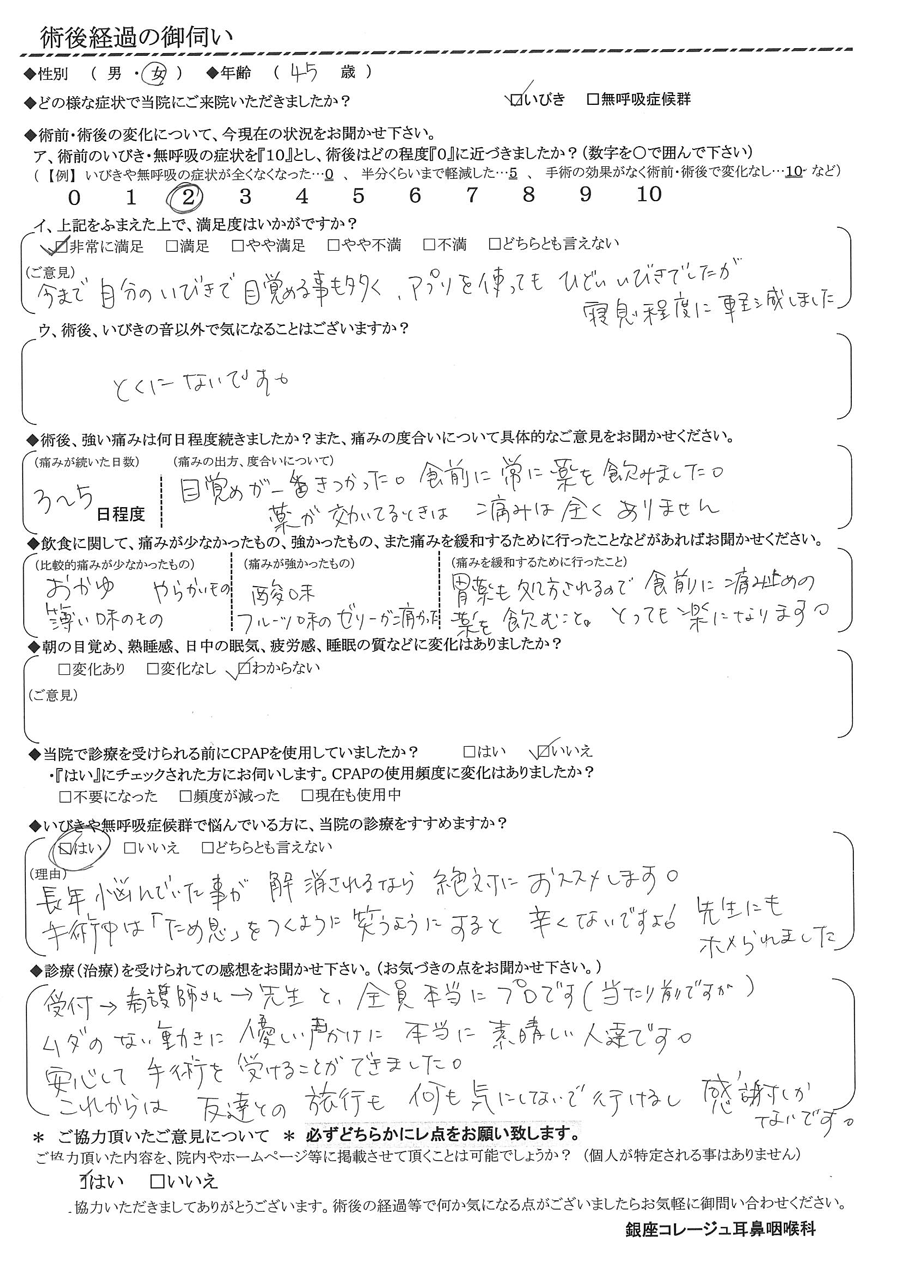 術後経過の御伺い
◆性別 （ 男 ・ 女 ） ◆年齢 （ 45 歳 ）
◆どの様な症状で当院にご来院いただきましたか？ ☑いびき □無呼吸症候群
◆術前・術後の変化について、今現在の状況をお聞かせ下さい。
ア、術前のいびき・無呼吸の症状を『10』とし、術後はどの程度『0』に近づきましたか？（数字を○で囲んで下さい）
（【例】いびきや無呼吸の症状が全くなくなった…0 、 半分くらいまで軽減した…5 、 手術の効果がなく術前・術後で変化なし…10 など）
0 1 2 3 4 5 6 7 8 9 10
イ、上記をふまえた上で、満足度はいかがですか？
☑非常に満足 □満足 □やや満足 □やや不満 □不満 □どちらとも言えない
（ご意見）
今まで自分のいびきで目覚める事も多く、アプリを使ってもひどいいびきでしたが
寝息程度に軽減しました
ウ、術後、いびきの音以外で気になることはございますか？
とくにないです。
◆術後、強い痛みは何日程度続きましたか？また、痛みの度合いについて具体的なご意見をお聞かせください。
（痛みが続いた日数） （痛みの出方、度合いについて）
3〜5 日程度
目覚めが一番きつかった。食前に常に薬を飲みました。
薬が効いてるときは痛みは全くありません
◆飲食に関して、痛みが少なかったもの、強かったもの、また痛みを緩和するために行ったことなどがあればお聞かせください。
（比較的痛みが少なかったもの） （痛みが強かったもの） （痛みを緩和するために行ったこと）
おかゆ やらかいもの
薄い味のもの
酸味
フルーツ味のゼリーが痛かった
胃薬も処方されるので食前に痛み止めの
薬を飲むこと。とっても楽になります。
◆朝の目覚め、熟睡感、日中の眠気、疲労感、睡眠の質などに変化はありましたか？
□変化あり □変化なし ☑わからない
（ご意見）
◆当院で診療を受けられる前にCPAPを使用していましたか？ □はい ☑いいえ
・『はい』にチェックされた方にお伺いします。CPAPの使用頻度に変化はありましたか？
□不要になった □頻度が減った □現在も使用中
◆いびきや無呼吸症候群で悩んでいる方に、当院の診療をすすめますか？
☑はい □いいえ □どちらとも言えない
（理由）
長年悩んでいた事が解消されるなら絶対におススメします。
手術中は「ため息」をつくように笑うようにすると辛くないですよ！先生にも
ホメられました
◆診療（治療）を受けられての感想をお聞かせ下さい。（お気づきの点をお聞かせ下さい。）
受付→看護師さん→先生と、全員本当にプロです（当たり前ですが）
ムダのない動きに優しい声かけに本当に素晴しい人達です。
安心して手術を受けることができました。
これからは友達との旅行も何も気にしないで行けるし感謝しか
ないです。
＊ ご協力頂いたご意見について ＊ 必ずどちらかにレ点をお願い致します。
ご協力頂いた内容を、院内やホームページ等に掲載させて頂くことは可能でしょうか？ （個人が特定される事はありません）
☑はい □いいえ
協力いただきましてありがとうございます。術後の経過等で何か気になる点がございましたらお気軽に御問い合わせください。
銀座コレージュ耳鼻咽喉科